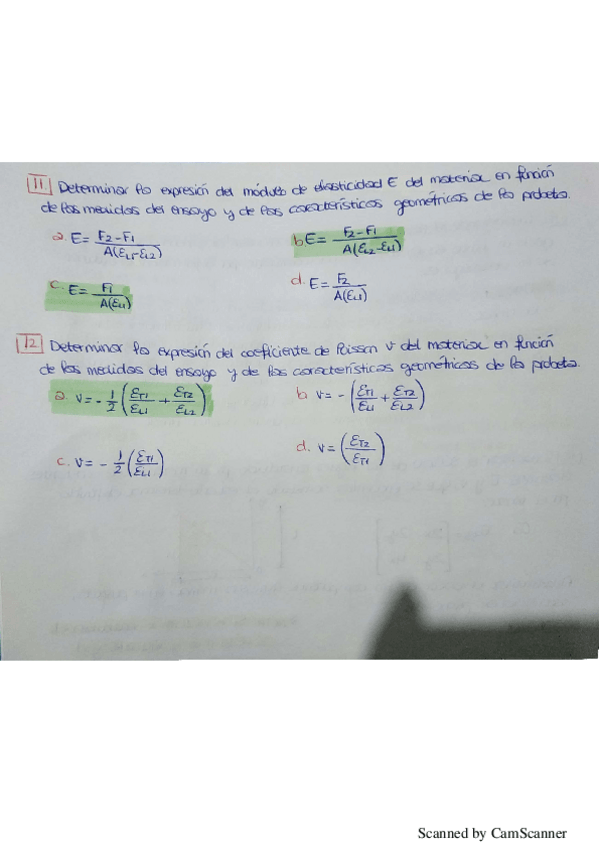 11. Determinar la expresión del módulo de elasticidad E del material en función
de las medidas del ensayo y de las características geométricas de la probeta.
a. E= F2-F1 / A(εL1-εL2)
b. E= F2-F1 / A(εL2-εL1)
c. E= F1 / A(εL1)
d. E= F2 / A(εL1)
12. Determinar la expresión del coeficiente de Poisson ν del material en función
de las medidas del ensayo y de las características geométricas de la probeta.
a. ν= - 1/2 (εT1/εL1 + εT2/εL2)
b. ν= - (εT1/εL1 + εT2/εL2)
c. ν= - 1/2 (εT1/εL1)
d. ν= (εT2/εT1)
Scanned by CamScanner